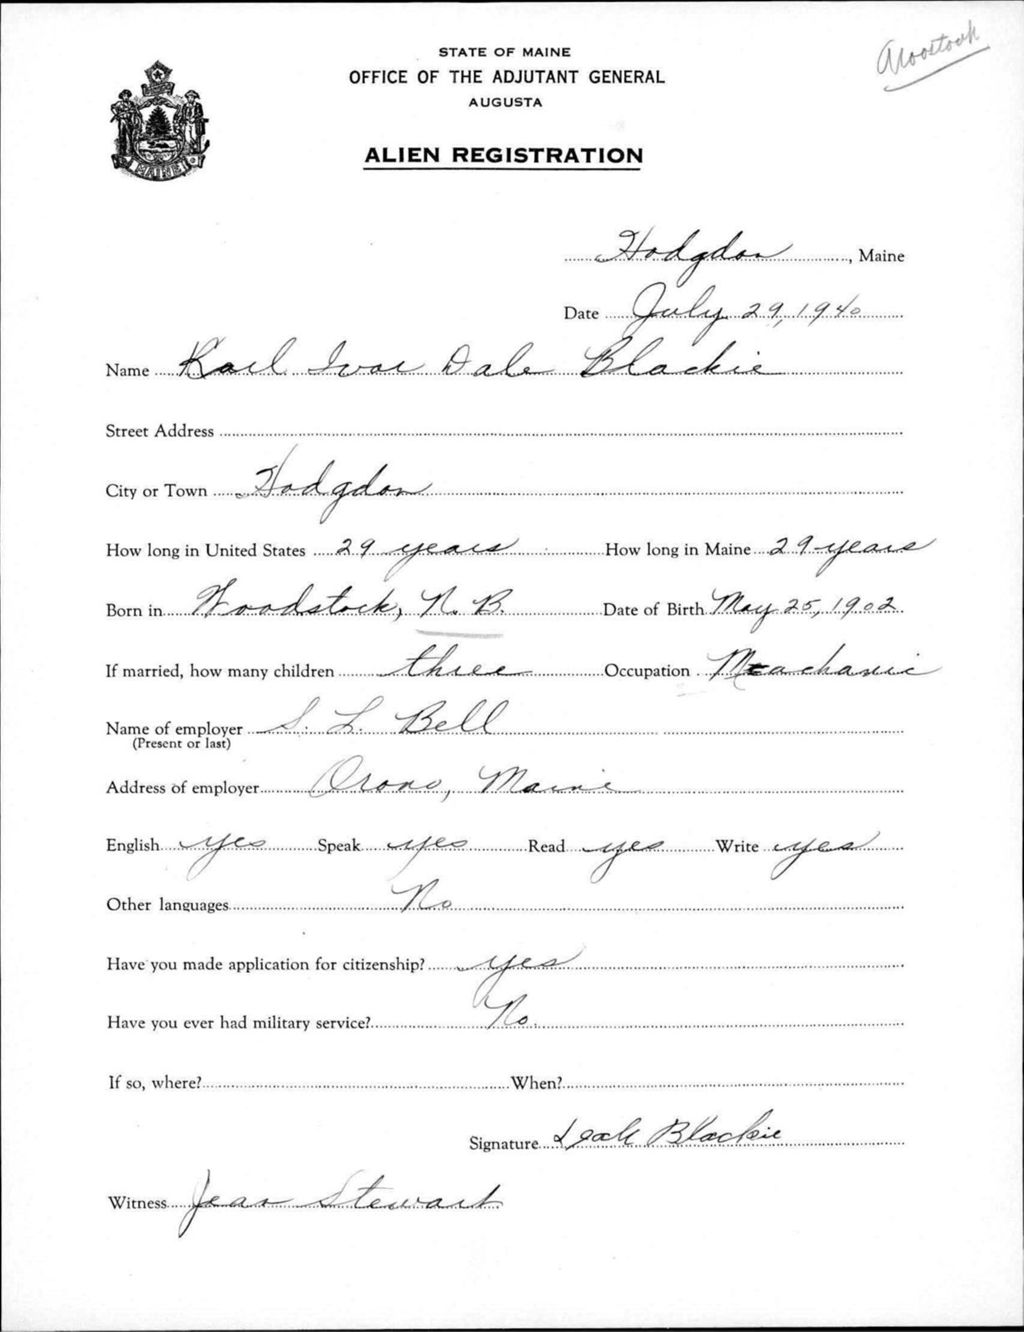 Aroostook
STATE OF MAINE
OFFICE OF THE ADJUTANT GENERAL
AUGUSTA
ALIEN REGISTRATION
MAINE
Hodgdon, Maine
Date July 29, 1940
Name Karl Ivar Dale Blackie
Street Address
City or Town Hodgdon
How long in United States 29 years How long in Maine 29 years
Born in Woodstock, N. B. Date of Birth May 25, 1902
If married, how many children three Occupation Meachanic
Name of employer S. L. Bell
(Present or last)
Address of employer Orono, Maine
English yes Speak yes Read yes Write yes
Other languages No
Have you made application for citizenship? yes
Have you ever had military service? No.
If so, where? When?
Signature Blackie
Witness Jean Stewart